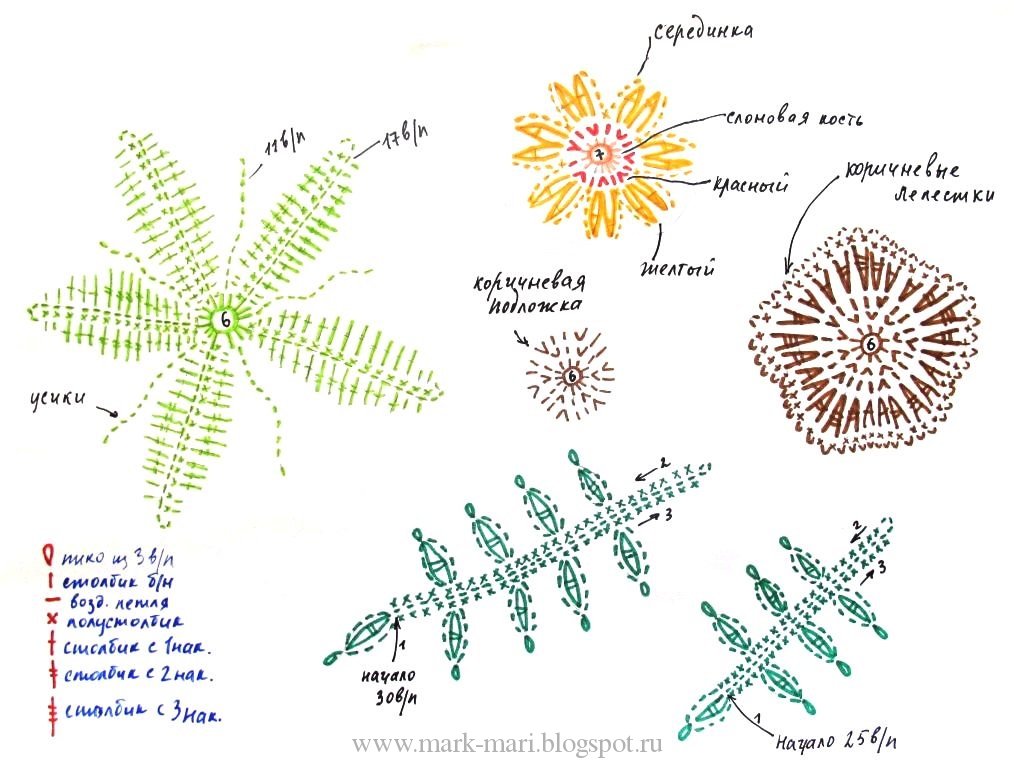 серединка
слоновая кость
красный
желтый
11в/п
17в/п
6
7
усики
коричневая
подложка
6
коричневые
лепестки
6
2
3
1
начало
30в/п
2
3
1
начало 25в/п
пико из 3в/п
столбик б/н
возд. петля
полустолбик
столбик с 1нак.
столбик с 2нак.
столбик с 3нак.
www.mark-mari.blogspot.ru